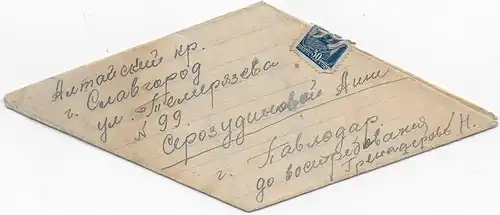 Алтайский кр.
г. Славгород
ул. Темирязева
N 99
Серозудиновой Анш
г. Павлодар.
до востребования
Гренадерова Н.
30